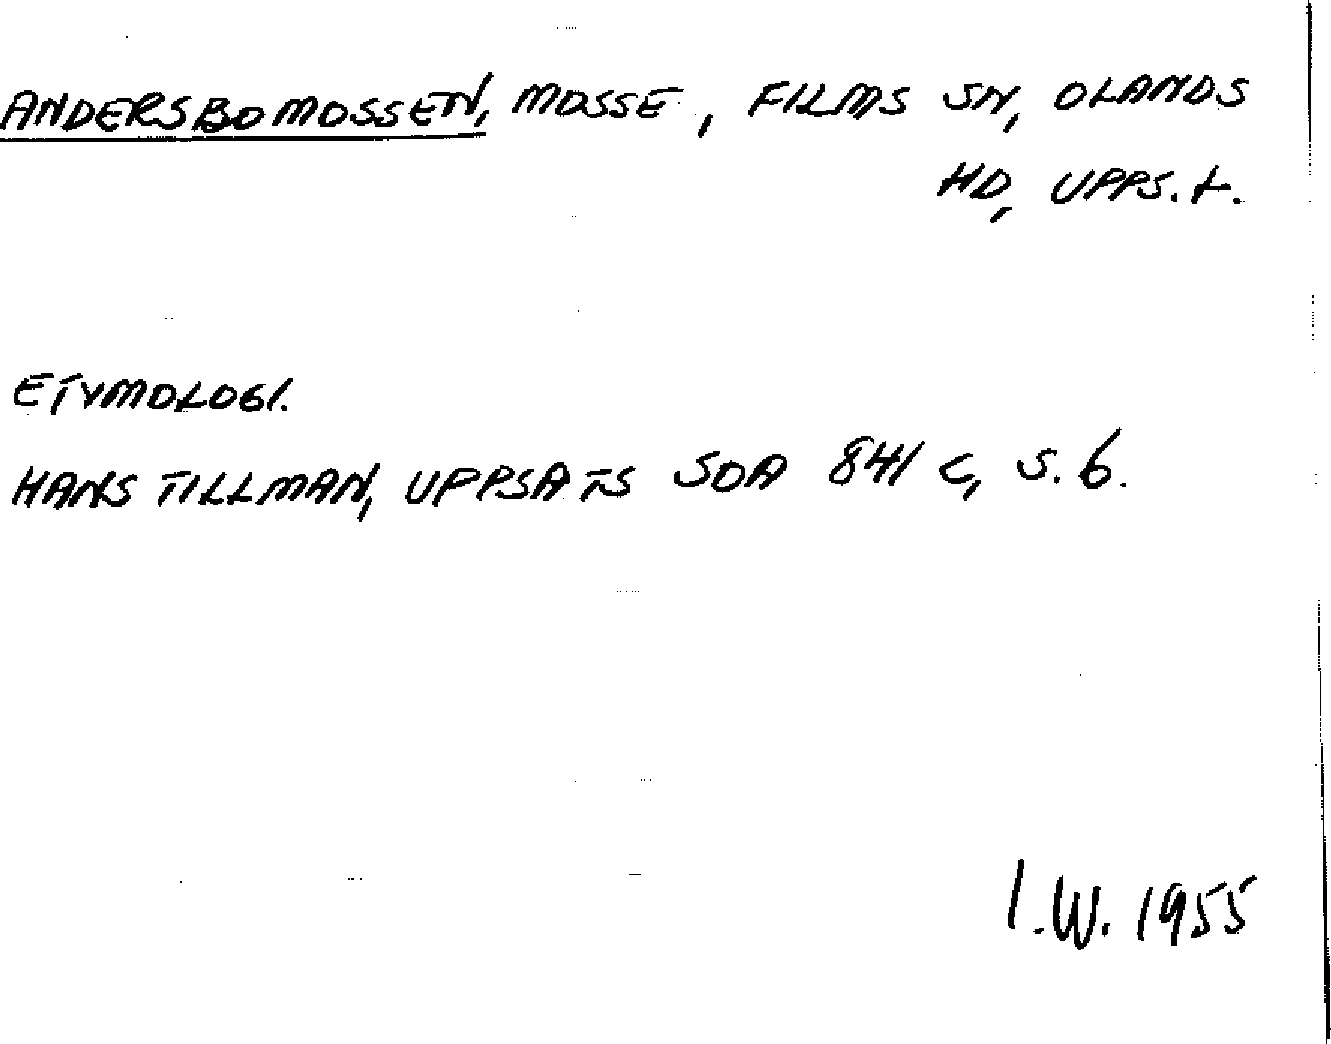 ANDERSBOMOSSEN, MOSSE, FILMS SN, OLANDS
HD, UPPS. L.
ETYMOLOGI.
HANS TILLMAN, UPPSATS SOA 841 C, S. 6.
I.W. 1955